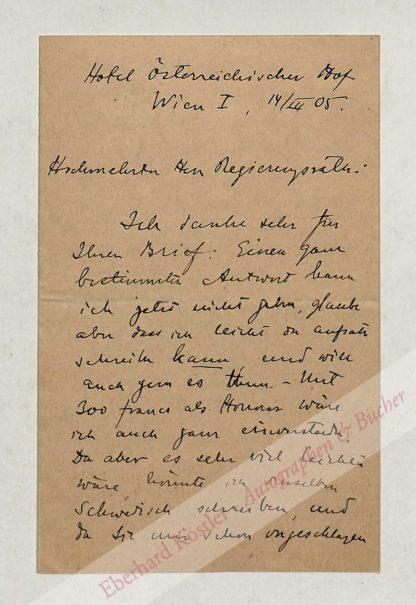 Hotel Österreichischer Hof
Wien I, 14/III 05.
Hochverehrter Herr Regierungsrath:
Ich danke sehr für
Ihren Brief. Einen ganz
bestimmten Antwort kann
ich jetzt nicht geben, glaube
aber dass ich leicht den aufsatz
schreiben kann und will
auch gern es thun. – Mit
300 francs als Honorar wäre
ich auch ganz einverstanden
Da aber es sehr viel leichter
wäre könnte ich denselben
Schwedisch schreiben, und
da Sie mir schon vorgeschlagen
Eberhard Köstler Autographen & Bücher